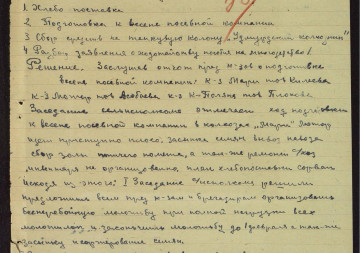 1 Хлебо поставка
2 Подготовка к весене посевной компании
3 Сбор средств на танковую колону "Удмуртский колхозник"
4 Разбор заявления о
Решение. Заслушав отчет пред к-зов о подготовке
весене посевной компании: к-з Мари тов
к-з тов к-з К-Поляна тов
Заседание сельисполкома отмечает ход подготовки
к весене посевной компании в колхозах „Мари"
идет плохо, засыпка семян вывоз навоза
сбор золы птичего помета, а так-же ремонт с/хоз
инвентаря не организованно, план хлебопоставки сорван
исходя из этого: Заседание исполкома решили
предложить всем пред к-зам и бригадирам организовать
бесперебойную молотьбу при полной нагрузки всех
молотилок и закончить молотьбу до 1 февраля а так-же
засыпку и сортирование семян.